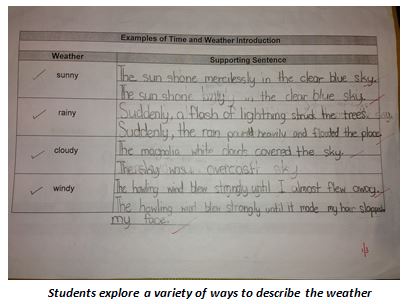 Examples of Time and Weather Introduction
Weather Supporting Sentence
sunny The sun shone mercilessly in the clear blue sky.
The sun shone in the clear blue sky.
rainy Suddenly, a flash of lightning struck the trees.
Suddenly, the rain heavily and flooded the place.
cloudy The magnolia white clouds covered the sky.
The sky was overcast sky
windy The howling wind blew strongly until I almost flew away.
The howling wind blew strongly until it made my hair slapped
my face.
Students explore a variety of ways to describe the weather